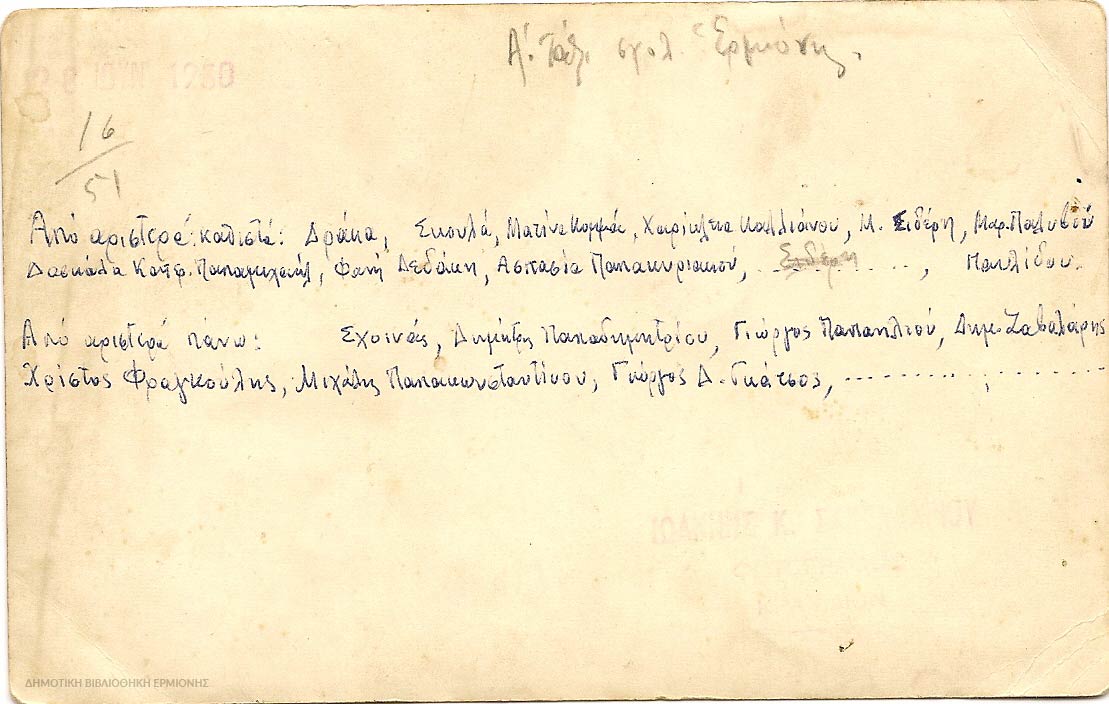 Α'. Τάξ. σχολ. Ερμιόνης.
ΙΟΥΝ 1960
16
51
Από αριστερά: καθιστά: Δράκα, Σκουλά, Ματίνα Κομμά, Χαρίκλεια Καλλιάνου, Μ. Σιδέρη, Μαρ. Παλυβού
Δασκάλα Κατφ. Παπαμιχαήλ, Φανή Δεδάκη, Ασπασία Παπακυριακού, ... Σιδέρη ..., Παυλίδου.
Από αριστερά πάνω: Σχοινάς, Δημήτρης Παπαδημητρίου, Γιώργος Παπαηλιού, Δημ. Ζαβαλάρης
Χρίστος Φραγκούλης, Μιχάλης Παπακωνσταντίνου, Γιώργος Δ. Γκάτσος, .......... , ..........
ΙΩΑΝΝΗΣ Κ.
ΔΗΜΟΤΙΚΗ ΒΙΒΛΙΟΘΗΚΗ ΕΡΜΙΟΝΗΣ